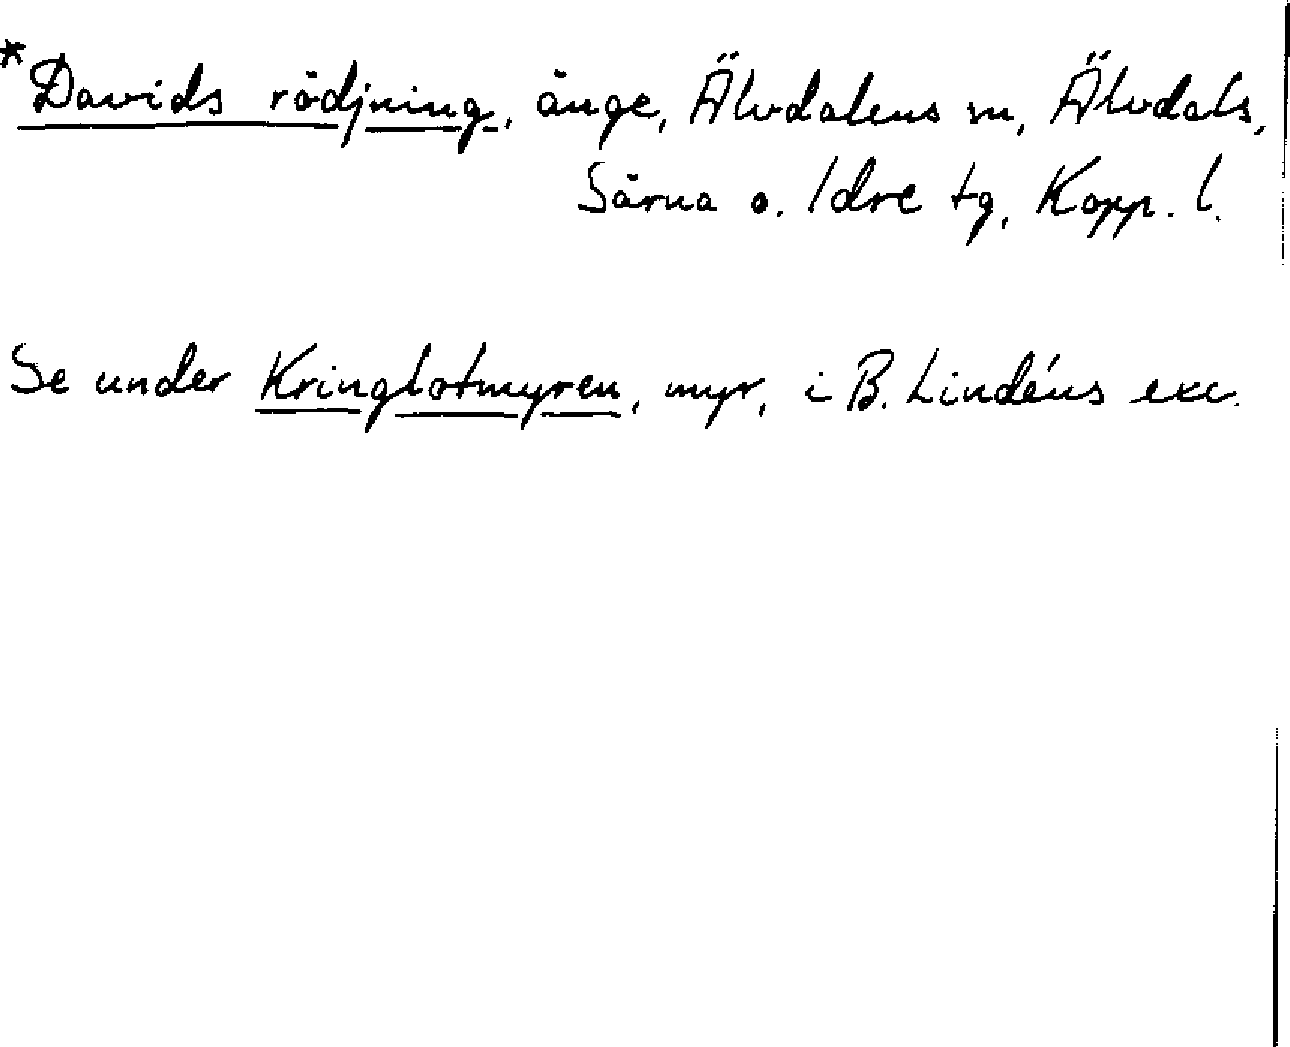 *Davids rödjning, änge, Älvdalens sn, Älvdals,
Särna o. Idre tg, Kopp. l.
Se under Kringlotmyren, myr, i B. Lindéns exc.